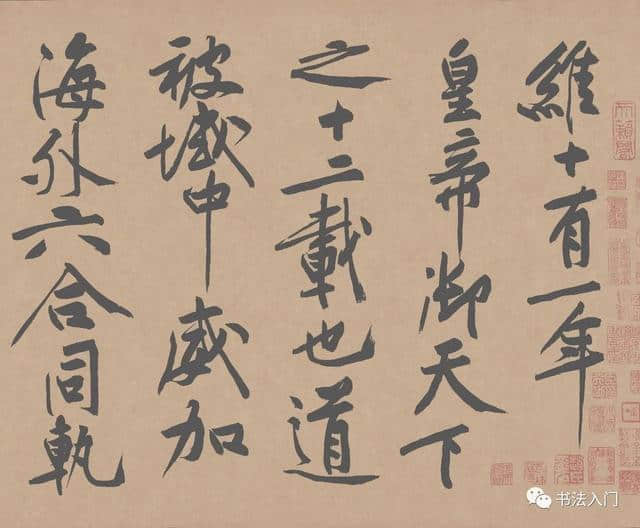 維十有一年
皇帝御天下
之十二載也道
被域中威加
海外六合同軌
书法入门